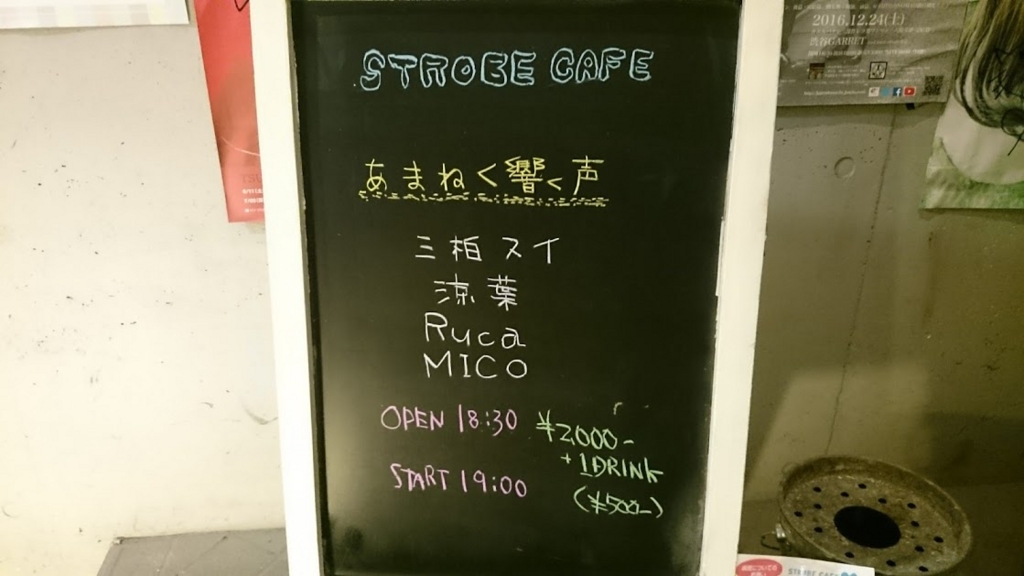 STROBE CAFE
あまねく響く声
三栢スイ
涼葉
Ruca
MICO
OPEN 18:30
START 19:00
¥2,000-
+1DRINK
(¥500-)
2016.12.24(土)
STROBE CAFE